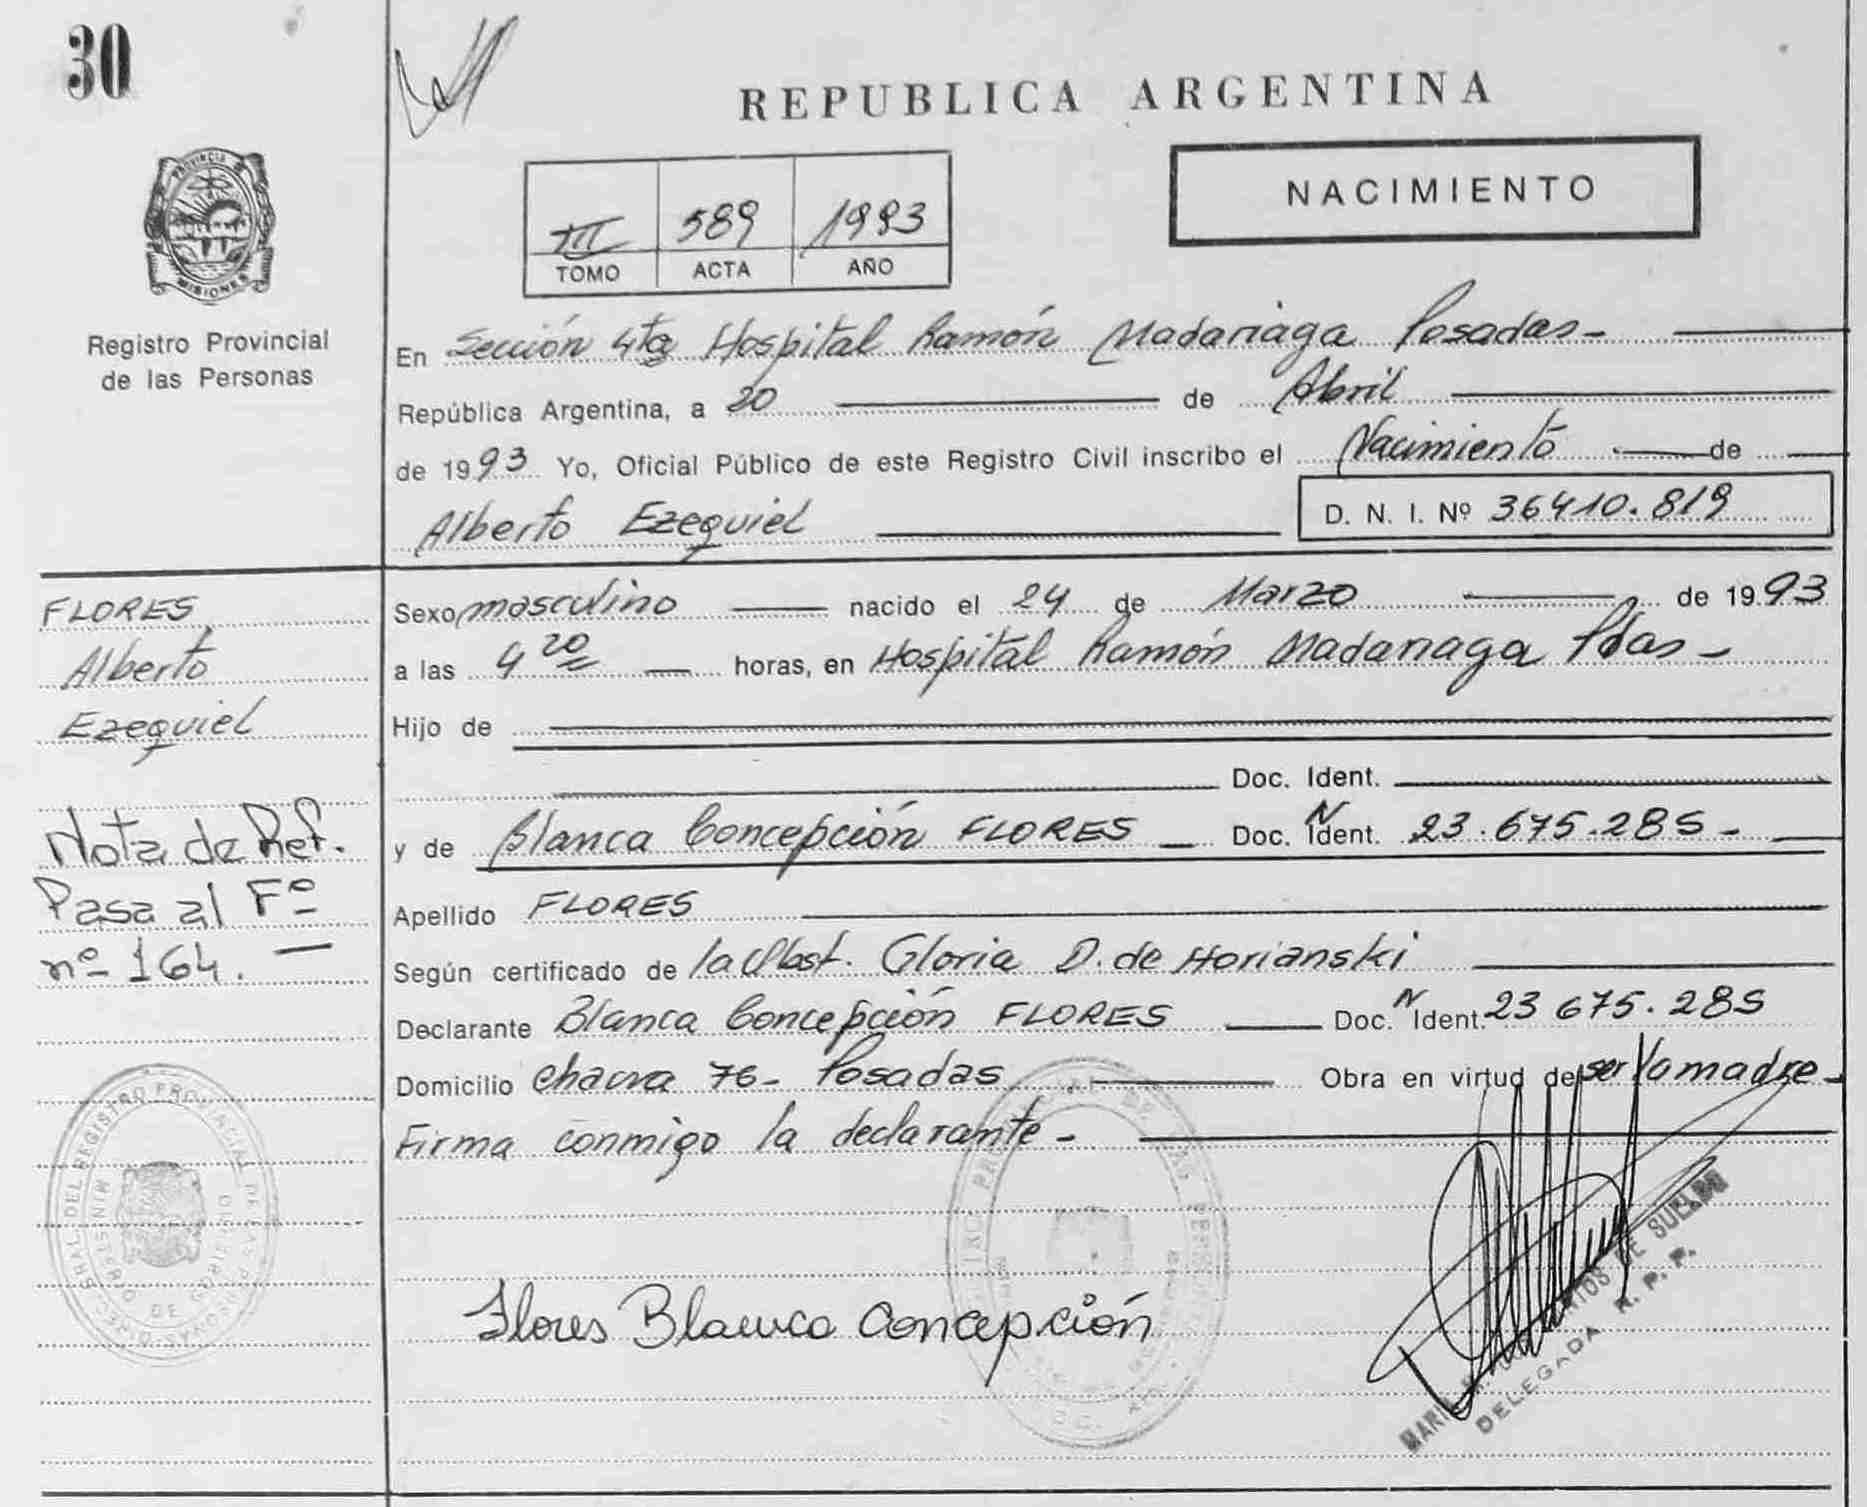 30
REPUBLICA ARGENTINA
NACIMIENTO
III 589 1993
TOMO ACTA AÑO
PROVINCIA DE
MISIONES
Registro Provincial
de las Personas
En Sección 4ta Hospital Ramón Madariaga Posadas-
República Argentina, a 20 de Abril
de 1993 Yo, Oficial Público de este Registro Civil inscribo el Nacimiento de
Alberto Ezequiel D. N. I. Nº 36410.819
FLORES
Alberto
Ezequiel
Nota de Ref.
Pasa al Fº
nº 164. —
Sexo masculino nacido el 24 de Marzo de 1993
a las 9 20 horas, en Hospital Ramón Madariaga Pdas-
Hijo de
Doc. Ident.
y de Blanca Concepción FLORES Doc. N Ident. 23.675.285-
Apellido FLORES
Según certificado de la Obst. Gloria D. de Horianski
Declarante Blanca Concepción FLORES Doc. N Ident. 23 675.285
Domicilio Chacra 76- Posadas Obra en virtud de ser la madre-
Firma conmigo la declarante-
Flores Blanca Concepción
DELEGADA R. P. P.